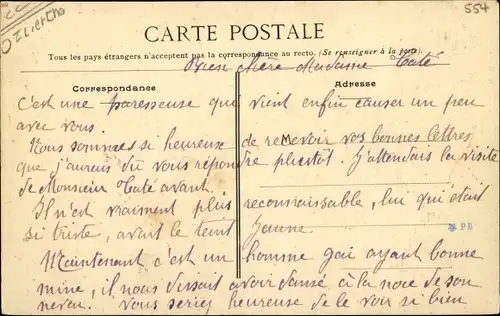 554
CARTE POSTALE
Tous les pays étrangers n'acceptent pas la correspondance au recto. (Se renseigner à la poste).
Bien Chère Madame Taté
Correspondance
Adresse
C'est une paresseuse qui vient enfin causer un peu
avec vous.
Nous sommes si heureuse de recevoir vos bonnes lettres
que j'aurais dû vous répondre plutôt. J'attendais la visite
de Monsieur Taté avant.
Il n'est vraiment plus reconnaissable, lui qui était
si triste, avait le teint jaune.
M PB
Maintenant c'est un homme gai ayant bonne
mine, il nous disait avoir dansé à la noce de son
neveu. Vous seriez heureuse de le voir si bien